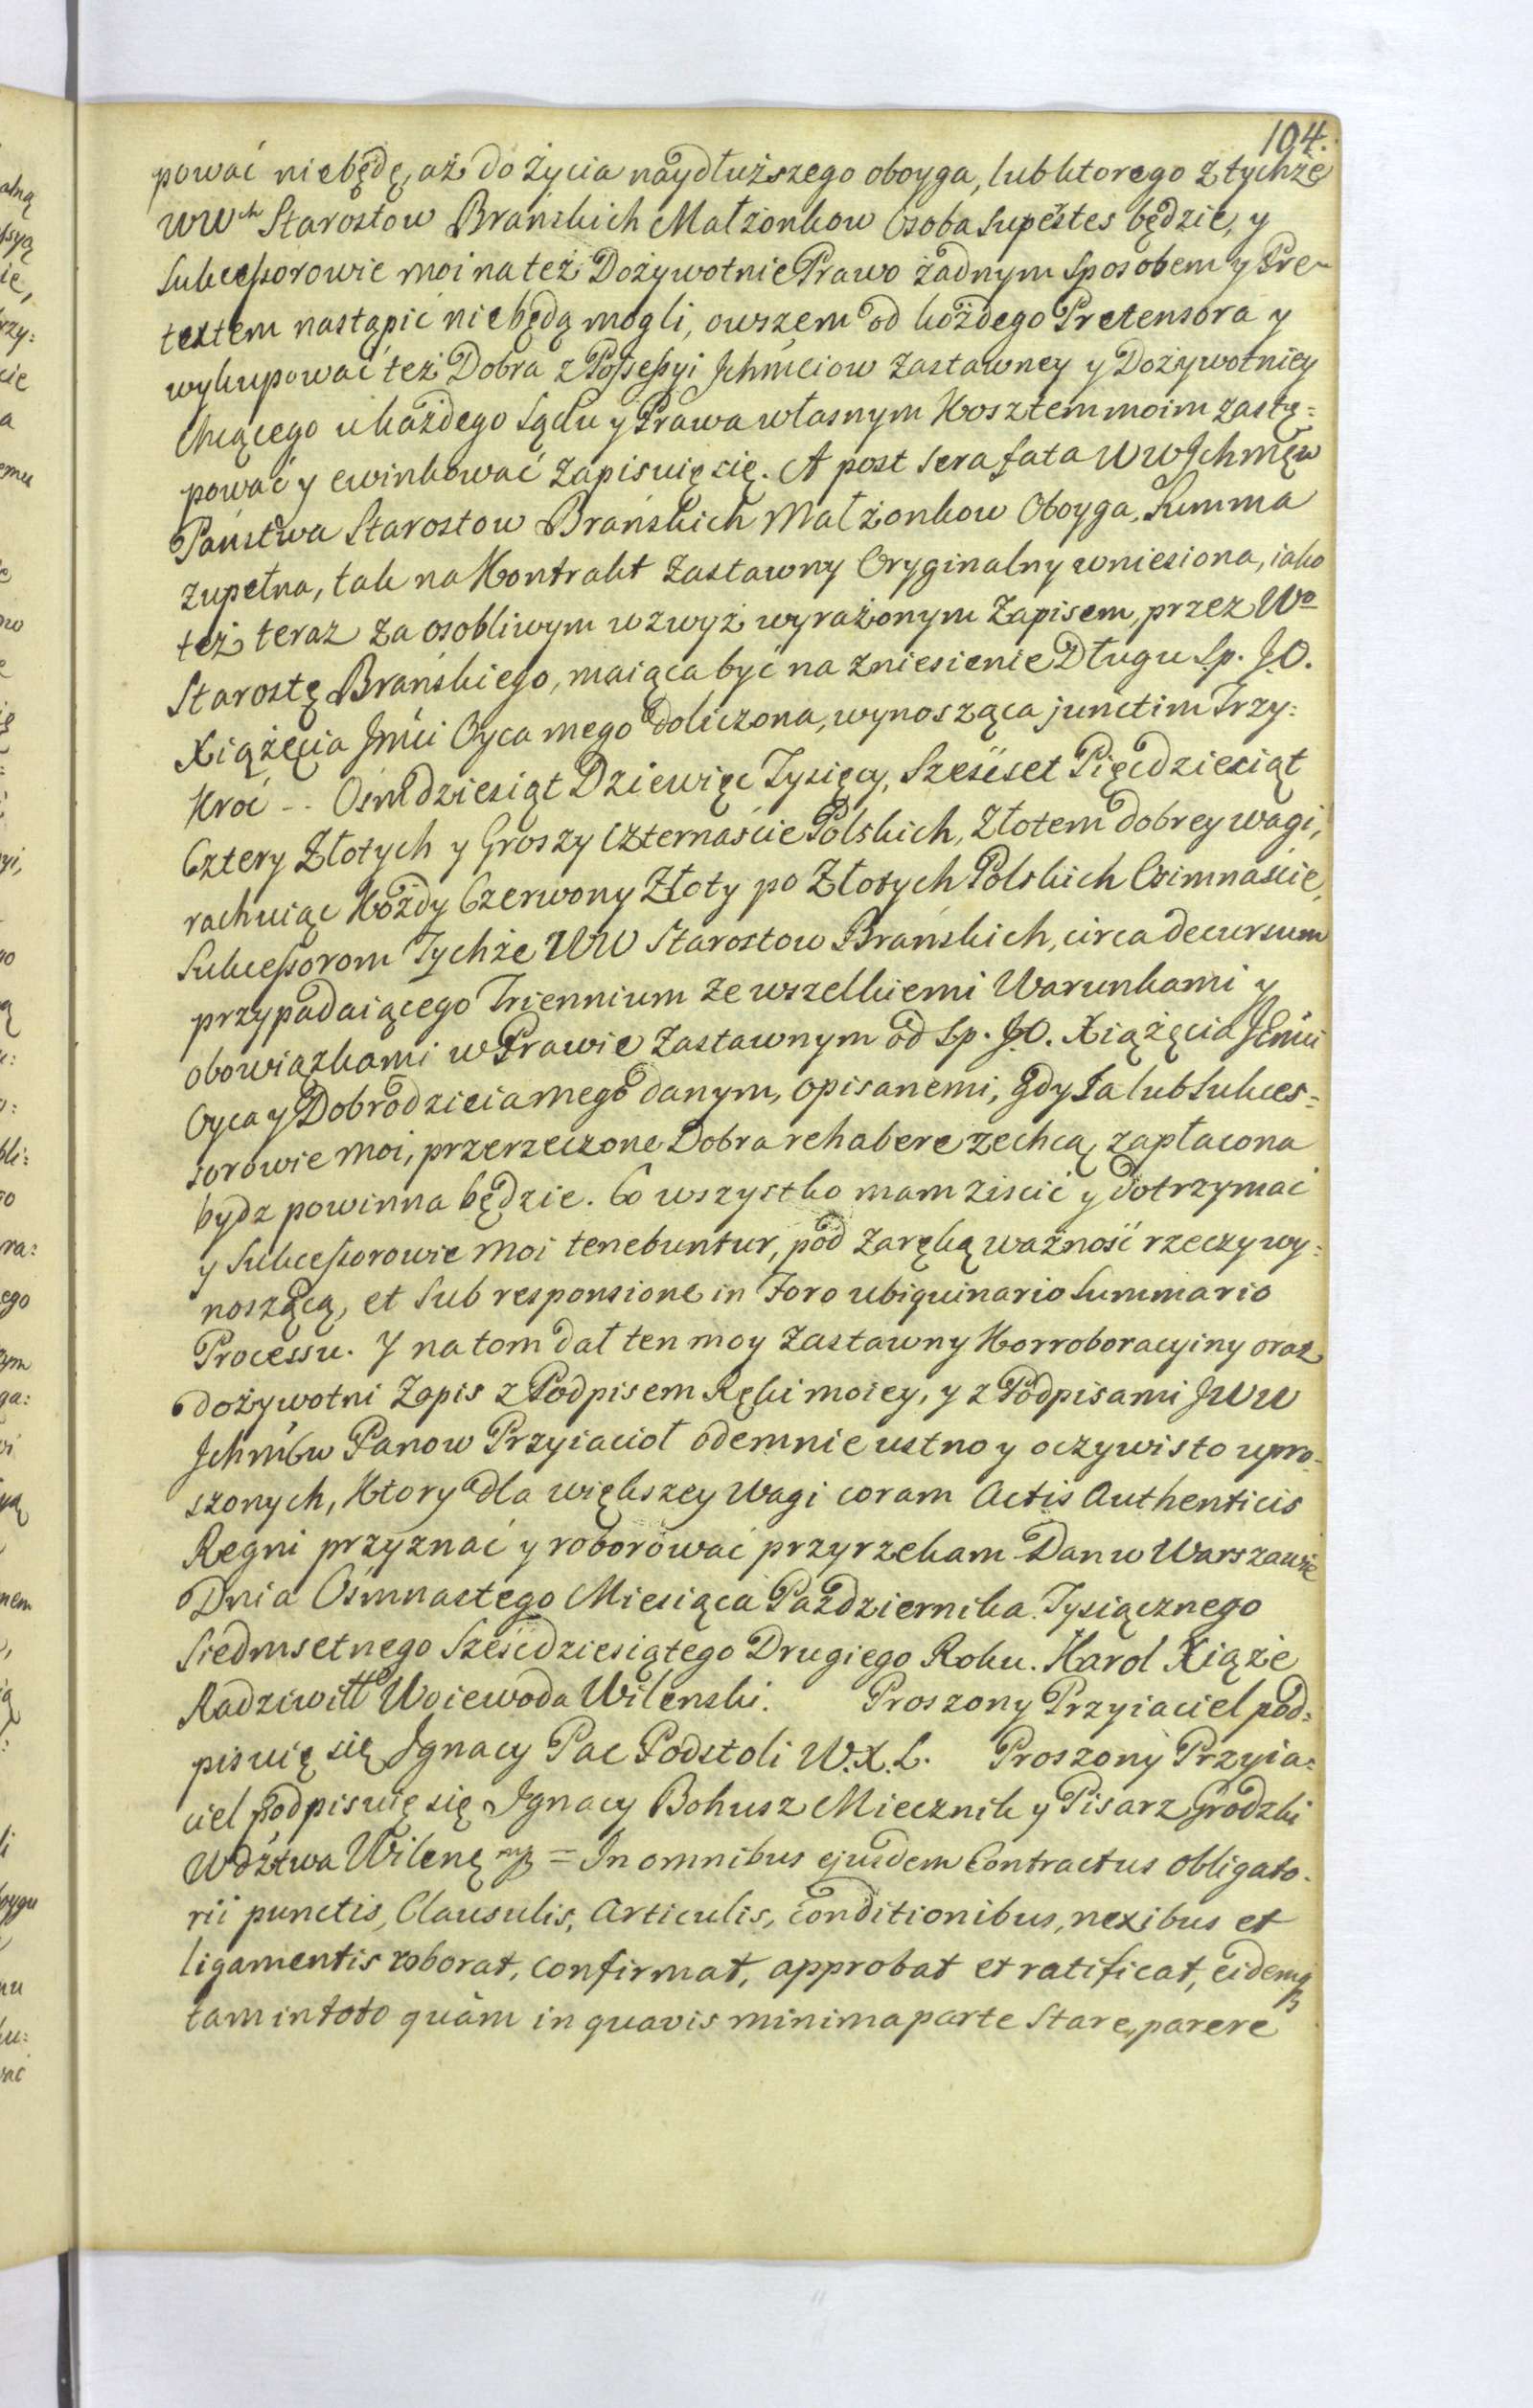 104.
pować niebędę, aż do życia naydłuższego oboyga, lub ktorego z tychże
WWch Starostow Brańskich Małżonkow Osoba Supestes będzie, y
Sukcessorowie moi na też Dożywotnie Prawo żadnym Sposobem y Pre-
textem nastąpić niebędą mogli, owszem od każdego Pretensora y
wykupować też Dobra z Possessyi Jchmciow Zastawney y Dożywotniey
Chcącego u każdego Sądu y Prawa własnym Kosztem moim zastę:
pować y ewinkować Zapisuię się. A post sera fata WW Jchmęw
Państwa Starostow Brańskich Małżonkow Oboyga, Summa
zupełna, tak na Kontrakt Zastawny Oryginalny wniesiona, iako
też teraz za osobliwym wzwyż wyrażonym Zapisem, przez Wo
Starostę Brańskiego, maiąca być na zniesienie Długu Sp. J.O.
Xiążęcia Jmci Oyca mego doliczona, wynosząca junctim Trzy:
Kroć -- Ośmdziesiąt Dziewięc Tysięcy, Sześćset Pięcdziesiąt
Cztery Złotych y Groszy Czternaście Polskich, Złotem dobrey wagi,
rachuiąc Każdy Czerwony Złoty po Złotych Polskich Osimnaście,
Sukcessorom Tychże WW Starostow Brańskich, circa decursum
przypadaiącego Triennium ze wszelkiemi Warunkami y
obowiązkami w Prawie Zastawnym od Sp. J.O. Xiążęcia Jmci
Oyca y Dobrodzieia mego danym, opisanemi, gdy Ja lub Sukces=
sorowie moi, przerzeczone Dobra rehabere zechcą, zapłacona
bydz powinna będzie. Co wszystko mam ziscić y dotrzymać
y Sukcessorowie moi tenebuntur, pod Zaręką ważność rzeczy wy:
noszącą, et Sub responsione in Foro ubiquinario Summario
Processu. Y na tom dał ten moy Zastawny Korroboracyiny oraz
dożywotni Zapis z Podpisem Ręki moiey, y z Podpisami JWW
Jchmćw Panow Przyiacioł odemnie ustno y oczywisto upro-
szonych, Ktory dla większey wagi coram Actis Authenticis
Regni przyznać y roborować przyrzekam Dan w Warszawie
Dnia Ośmnastego Miesiąca Pazdziernika Tysiącznego
Siedmsetnego Sześcdziesiątego Drugiego Roku. Karol Xiąże
Radziwiłł Woiewoda Wilenski. Proszony Przyiaciel pod:
pisuię się Jgnacy Pac Podstoli W.X.L. Proszony Przyia:
ciel podpisuię się Jgnacy Bohusz Miecznik y Pisarz Grodzki
Wdztwa Wileng = In omnibus ejusdem Contractus obligato-
rii punctis, Clausulis, Articulis, conditionibus, nexibus et
ligamentis roborat, confirmat, approbat et ratificat, eidemq
tam in toto quàm in quavis minima parte Stare, parere